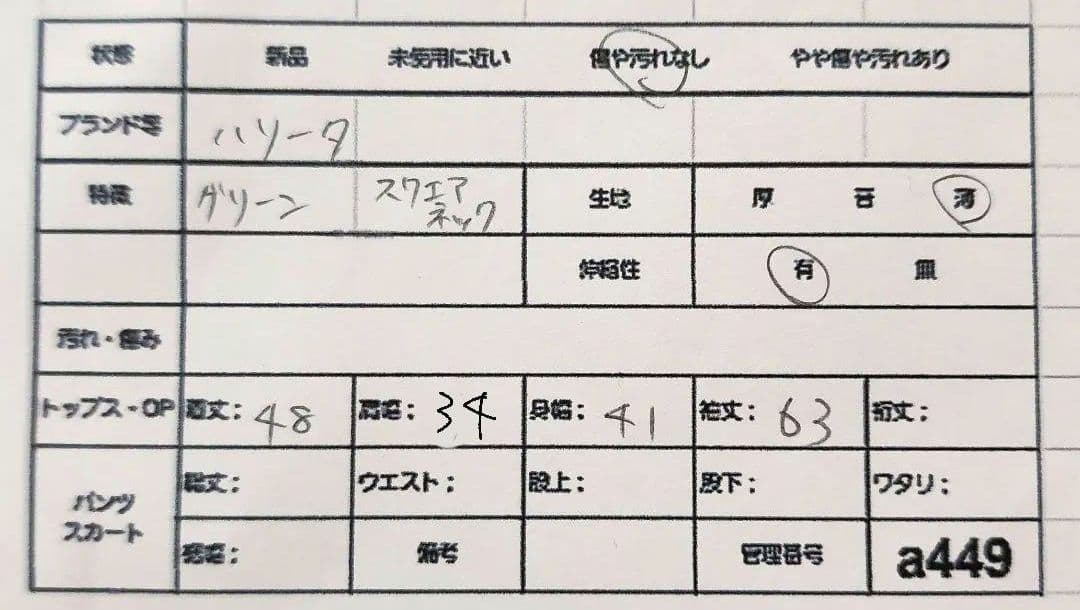 状態 新品 未使用に近い 傷や汚れなし やや傷や汚れあり
ブランド等 ハリータ
特徴 グリーン スクエア ネック 生地 厚 普 薄
伸縮性 有 無
汚れ・傷み
トップス・OP 着丈: 48 肩幅: 34 身幅: 41 袖丈: 63 裄丈:
パンツ スカート 総丈: ウエスト: 股上: 股下: ワタリ:
裾幅: 備考 管理番号 a449